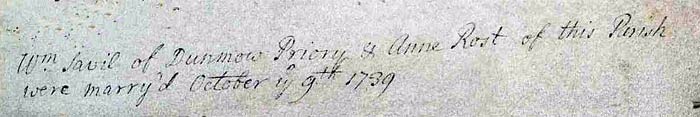 Wm Savil of Dunmow Priory & Anne Rost of this Parish
were marry'd October ye 9th 1739